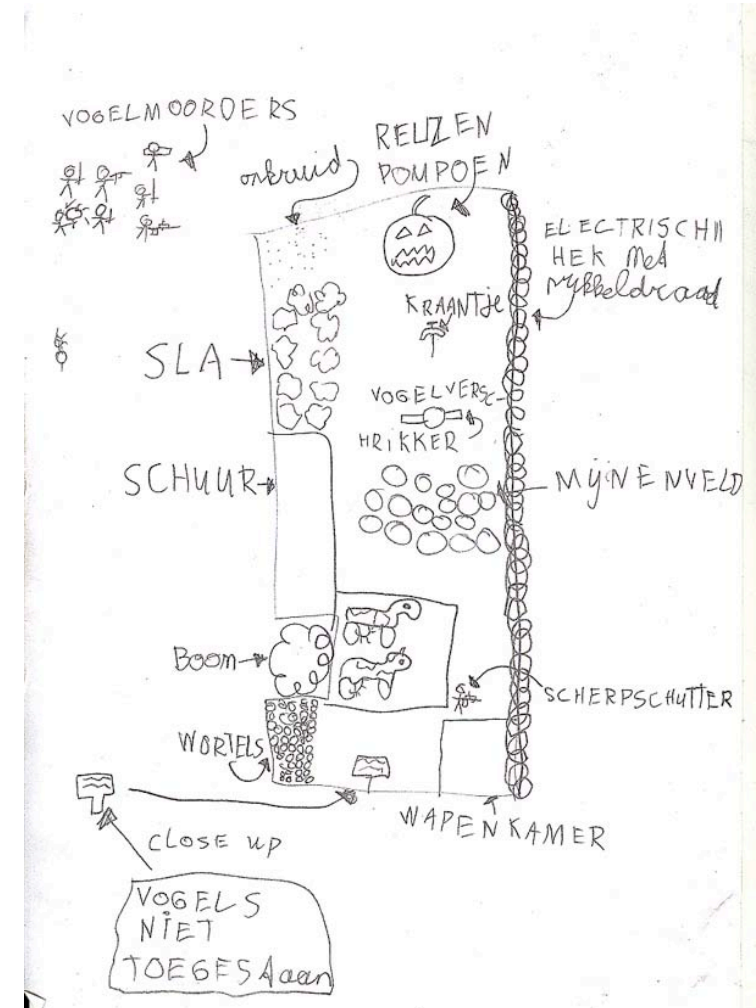 VOGELMOORDERS
onkruid
REUZEN
POMPOEN
ELECTRISCH
HEK Met
prykkeldraad
KRAANTje
SLA
VOGELVERSC-
HRIKKER
SCHUUR
MyNENVELD
Boom
SCHERPSCHUTTER
WORTELS
WAPENKAMER
CLOSE UP
VOGELS
NIET
TOEGESAaan